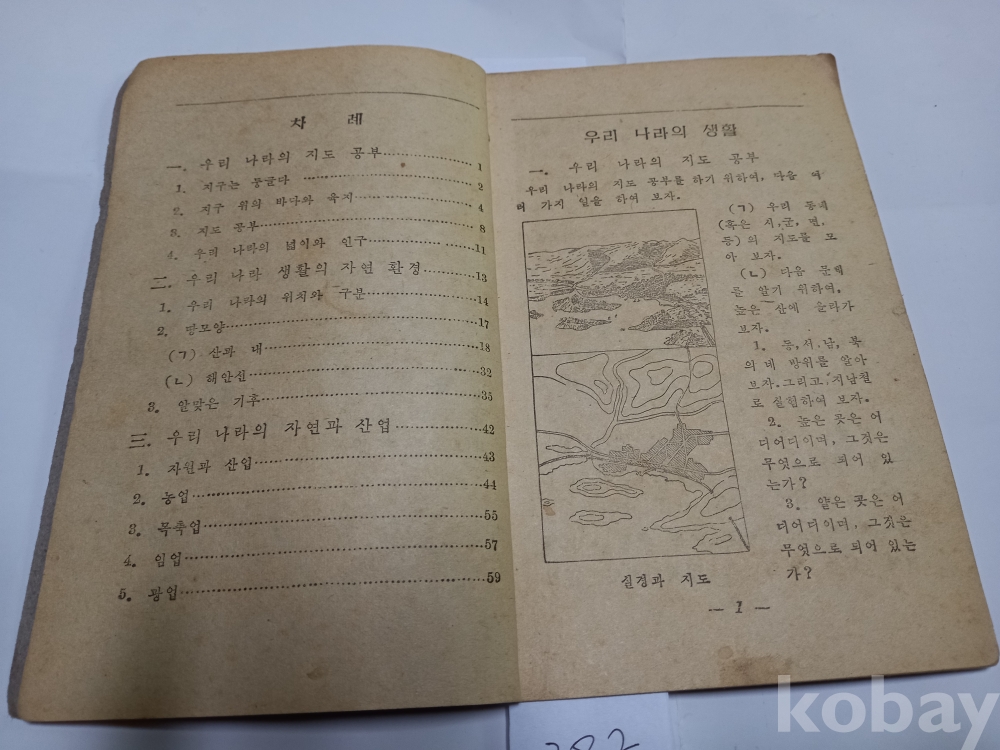 차 례
一. 우리 나라의 지도 공부 1
1. 지구는 둥글다 2
2. 지구 위의 바다와 육지 4
3. 지도 공부 8
4. 우리 나라의 넓이와 인구 11
二. 우리 나라 생활의 자연 환경 13
1. 우리 나라의 위치와 구분 14
2. 땅모양 17
(ㄱ) 산과 내 18
(ㄴ) 해안선 32
3. 알맞은 기후 35
三. 우리 나라의 자연과 산업 42
1. 자원과 산업 43
2. 농업 44
3. 목축업 55
4. 임업 57
5. 광업 59
우리 나라의 생활
一. 우리 나라의 지도 공부
우리 나라의 지도 공부를 하기 위하여, 다음 여
러 가지 일을 하여 보자.
(ㄱ) 우리 동네
(혹은 시,군, 면,
등)의 지도를 모
아 보자.
(ㄴ) 다음 문제
를 알기 위하여,
높은 산에 올라가
보자.
1. 동,서,남, 북
의 네 방위를 알아
보자. 그리고, 지남철
로 실험하여 보자.
2. 높은 곳은 어
디어디이며, 그것은
무엇으로 되어 있
는가?
3. 얕은 곳은 어
디어디이며, 그것은
무엇으로 되어 있는
가?
실경과 지도
— 1 —
kobay
382